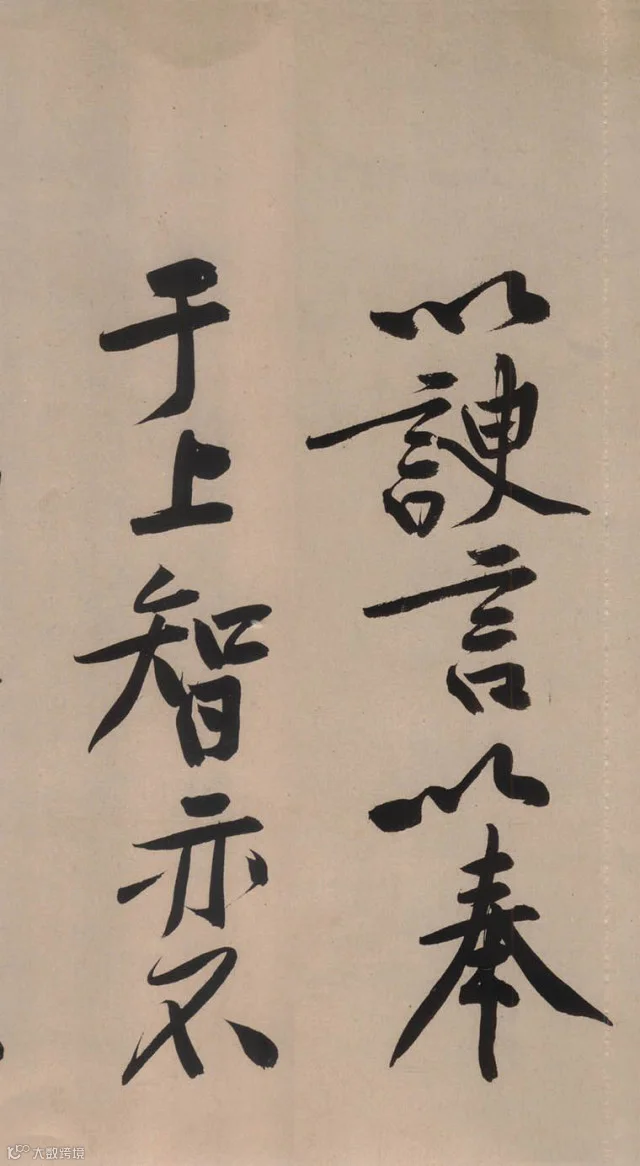 以諛言以奉
于上智亦不
大数跨境